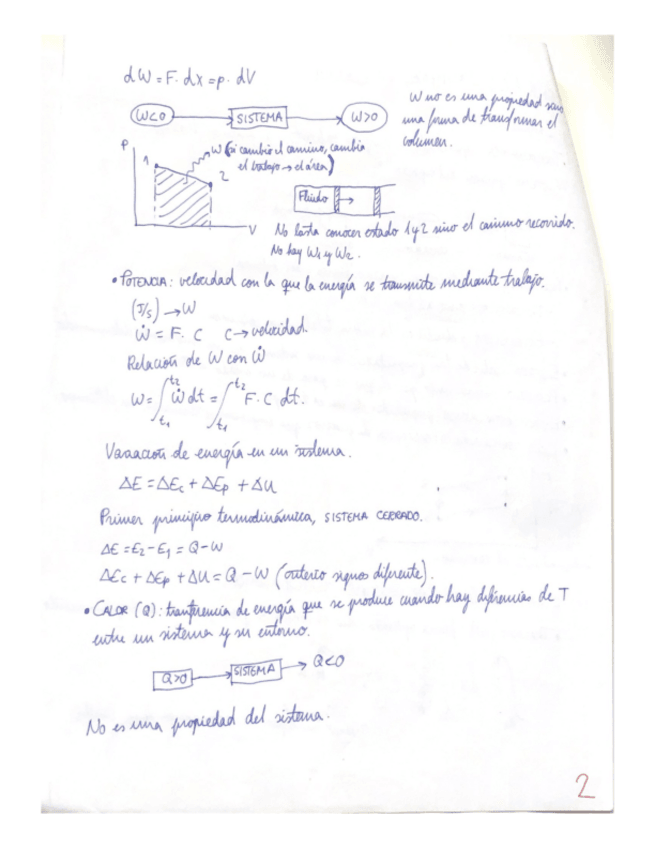 dW = F. dx = p. dV
W<0 → SISTEMA → W>0
W no es una propiedad sino
una forma de transformar el
volumen.
P
1
2
V
W (si cambio el camino, cambia
el trabajo → el área)
Fluido
No basta conocer estado 1 y 2 sino el camino recorrido.
No hay W1 y W2.
• POTENCIA: velocidad con la que la energía se transmite mediante trabajo.
(J/s) → W
Ẇ = F. C C → velocidad.
Relación de W con Ẇ
W = ∫t1t2 Ẇ dt = ∫t1t2 F. C dt.
Variación de energía en un sistema.
ΔE = ΔEc + ΔEp + ΔU
Primer principio termodinámica, SISTEMA CERRADO.
ΔE = E2 - E1 = Q - W
ΔEc + ΔEp + ΔU = Q - W (criterio signos diferente).
• CALOR (Q): tranferencia de energía que se produce cuando hay diferencias de T
entre un sistema y su entorno.
Q>0 → SISTEMA → Q<0
No es una propiedad del sistema.
2